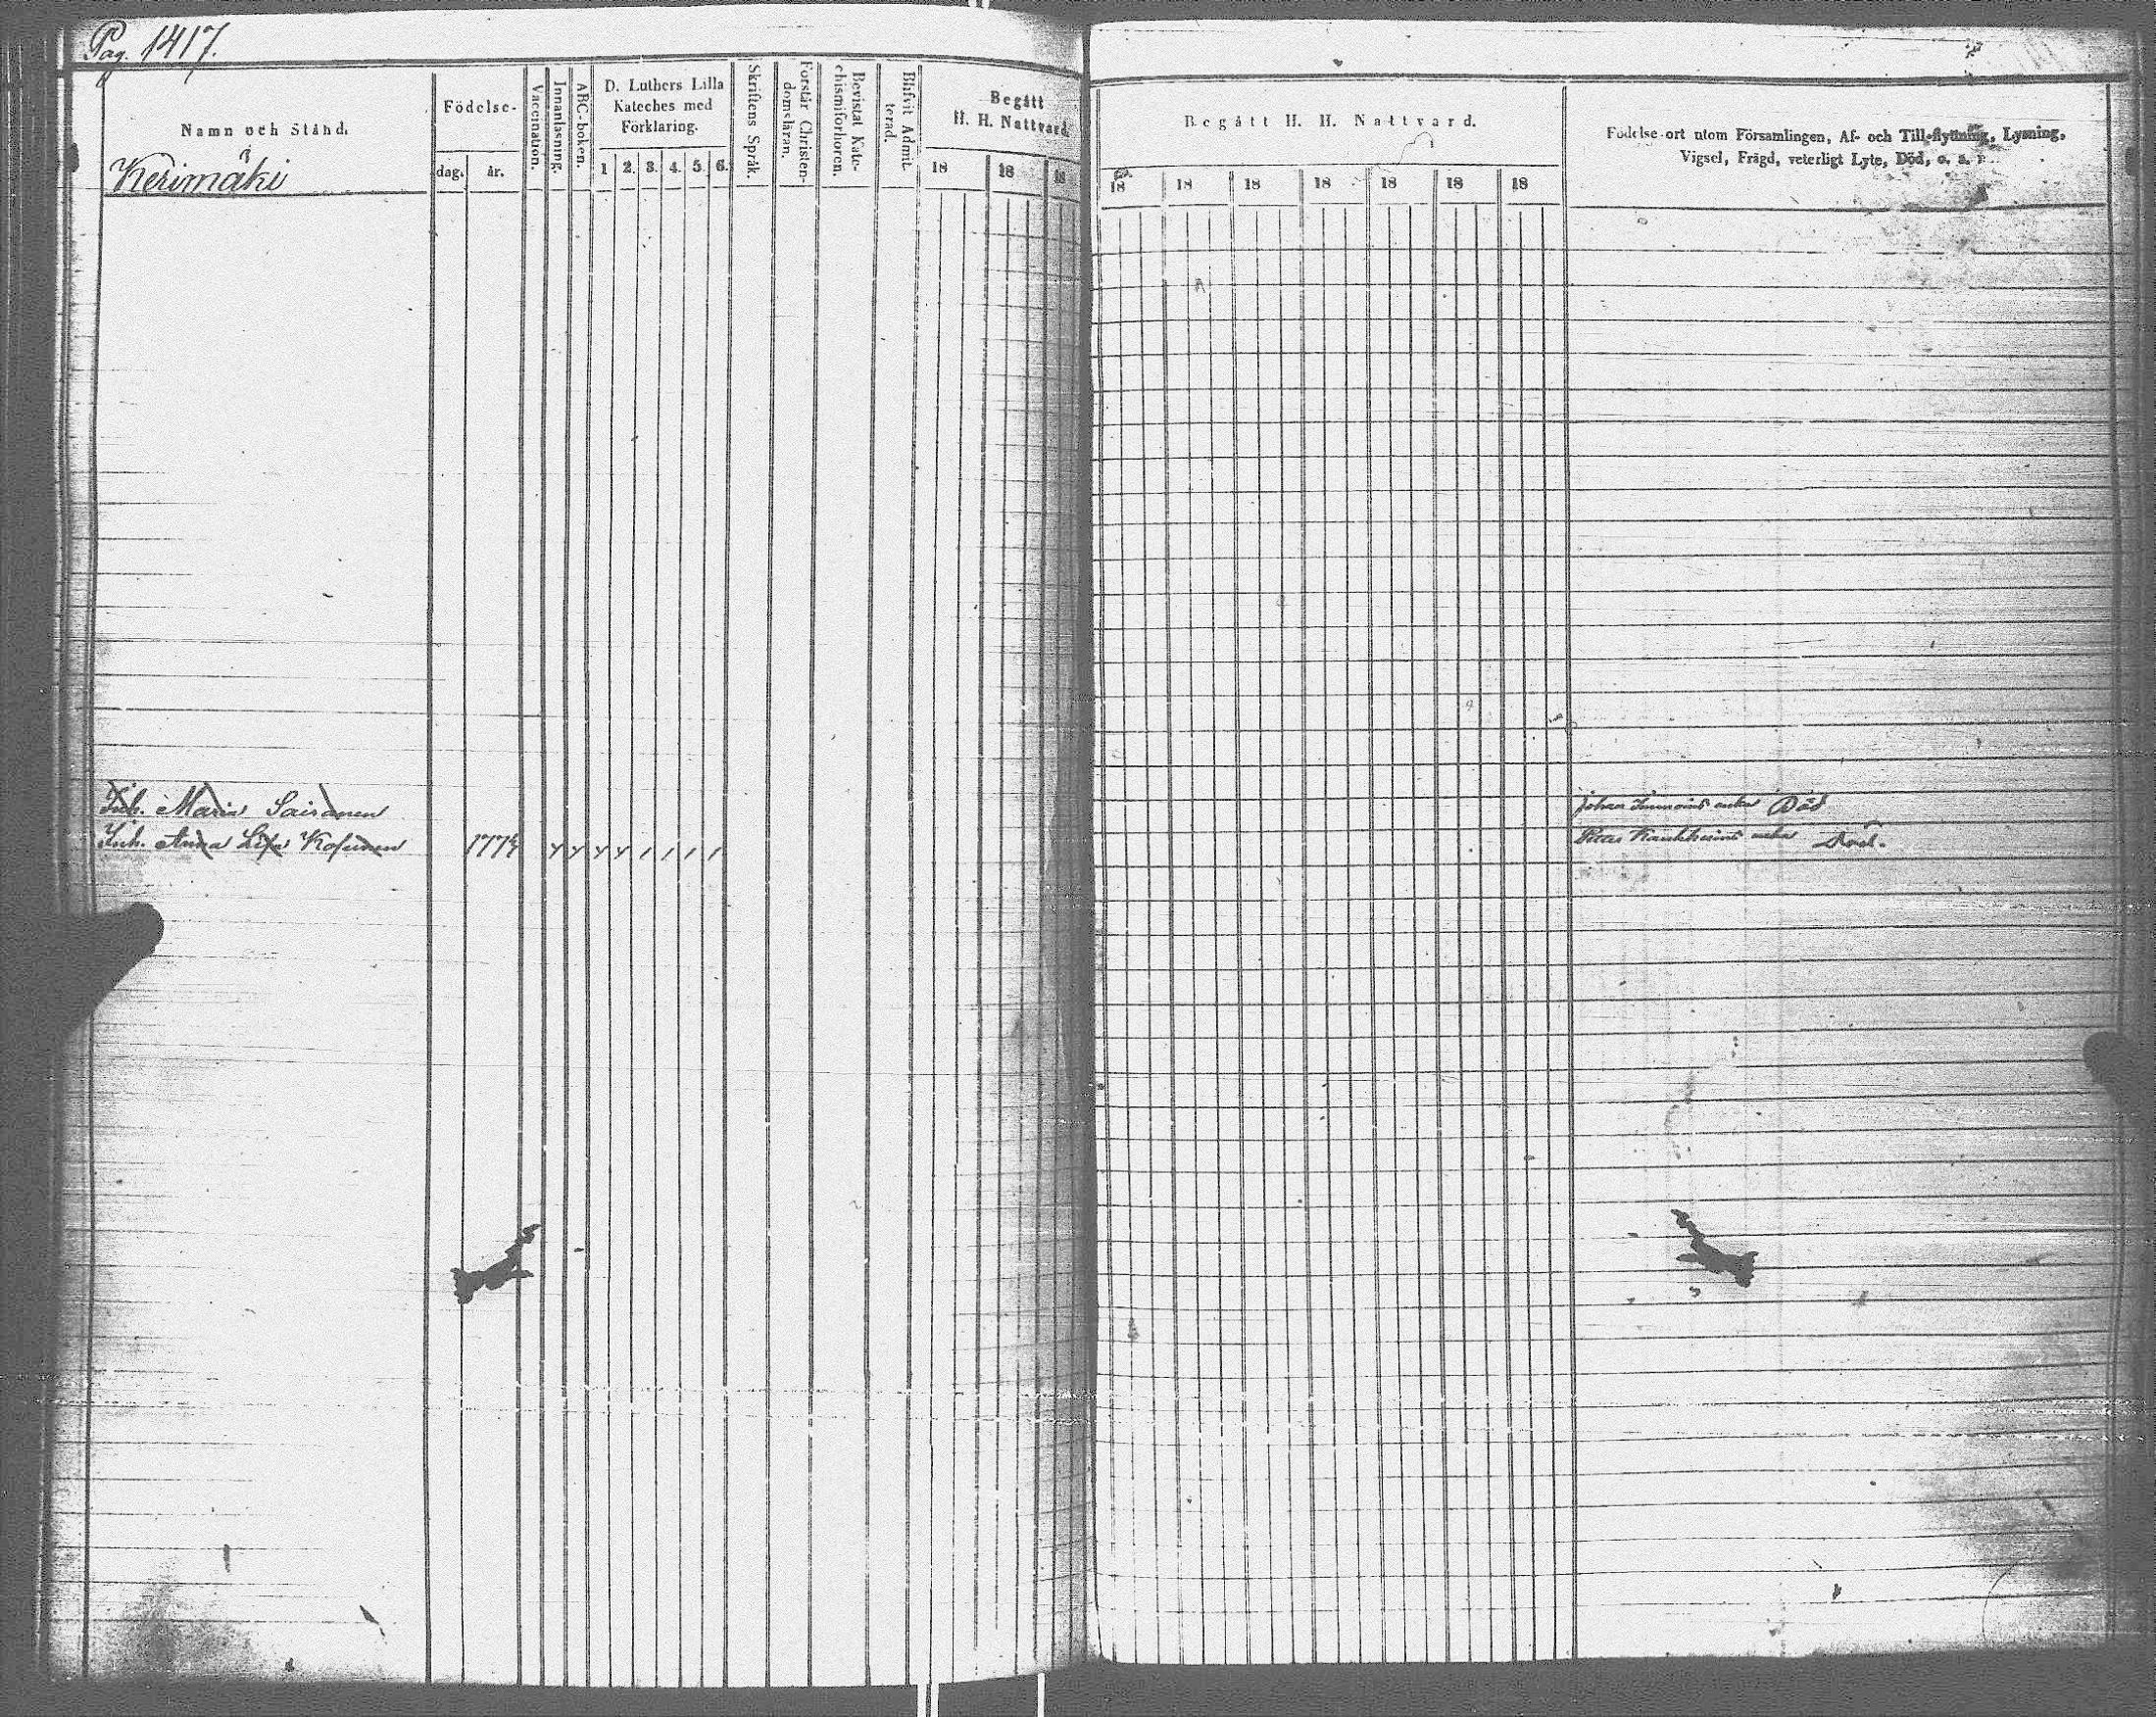 Pag. 1417.
Namn och Stånd.
Kerimäki
Födelse-
dag. år.
Vaccination.
Innanläsning.
ABC-boken.
D. Luthers Lilla
Kateches med
Förklaring.
1 2. 3. 4. 5. 6.
Skriftens Språk.
Förstår Christen-
domsläran.
Bevistat Kate-
chismiförhören.
Blifvit Admit-
terad.
Begått
H. H. Nattvard.
18 18 18
Begått H. H. Nattvard.
18 18 18 18 18 18 18
Födelse-ort utom Församlingen, Af- och Till-flyttning, Lysning,
Vigsel, Frägd, veterligt Lyte, Död, o. s. v.
Inh. Maria Sairanen
Johan enka Död
Inh. Anna Lisa Kosunen 1774
enka Död.